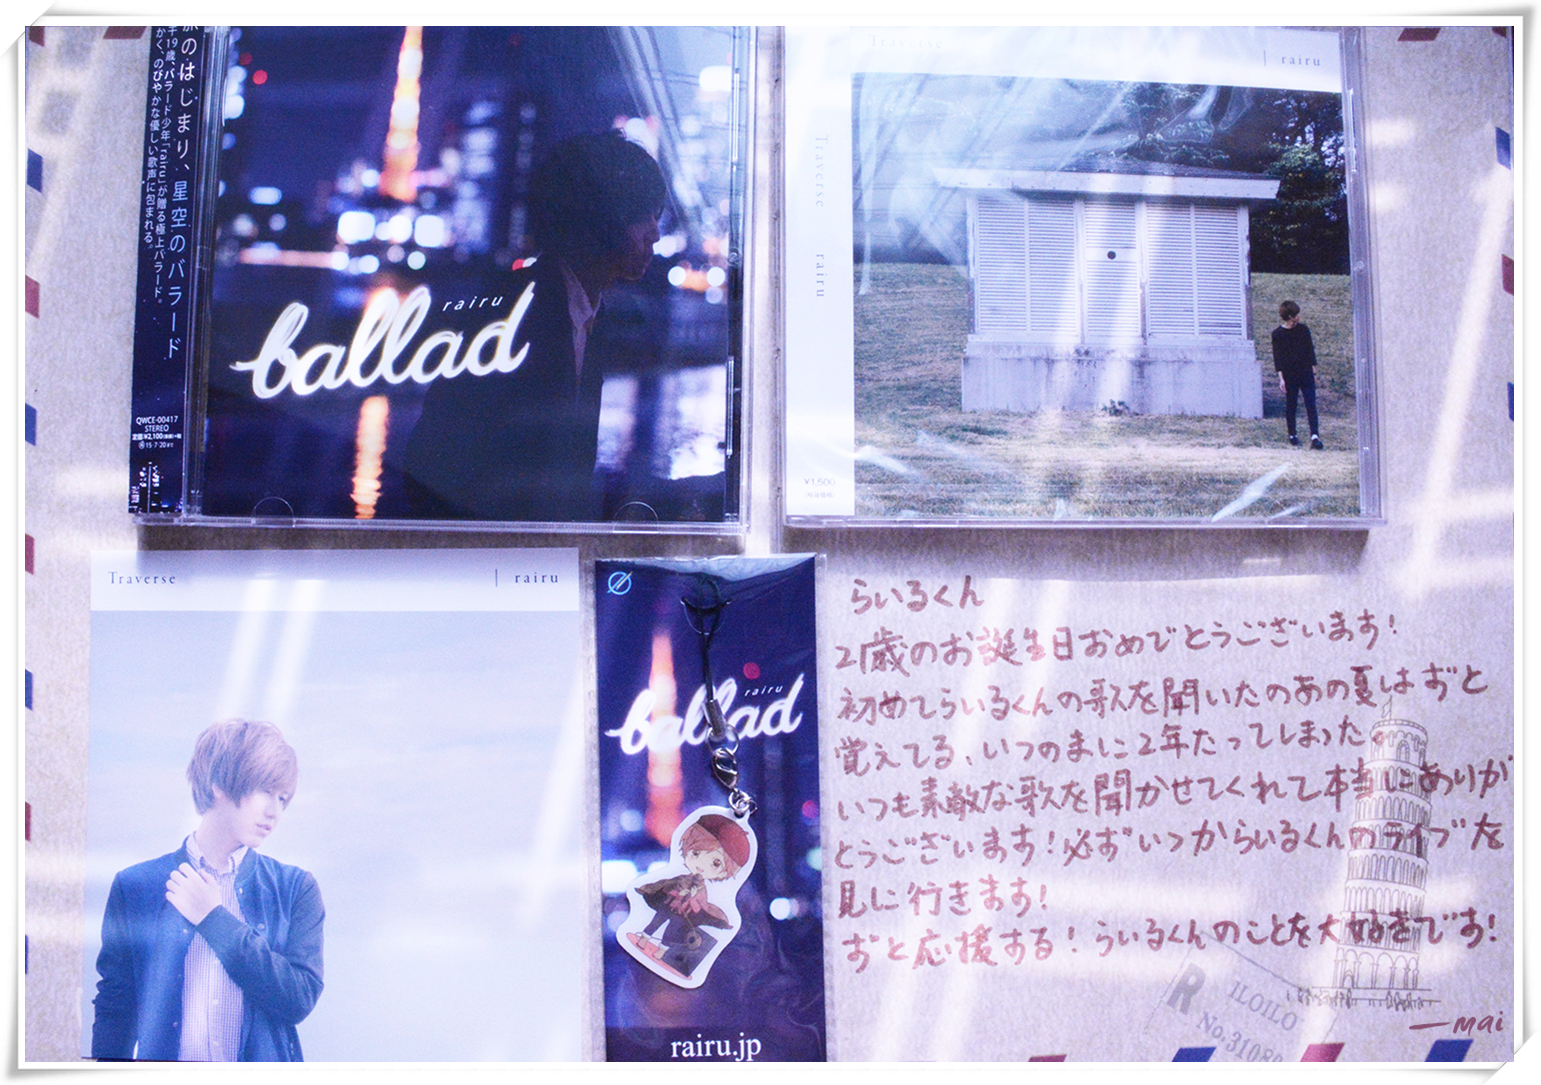 旅のはじまり、星空のバラード
19歳、バラード少年「rairu」が贈る極上バラード。
かく、のびやかな優しい歌声に包まれる。
QWCE-00417
STEREO
定価¥2,100(税抜)+税
15・7・20
rairu
ballad
Traverse
rairu
Traverse rairu
¥1,500
Traverse | rairu
rairu
ballad
rairu.jp
らいるくん
2歳のお誕生日おめでとうございます!
初めてらいるくんの歌を聞いたのあの夏はずと
覚えてる、いつのまに2年たってしまった。
いつも素敵な歌を聞かせてくれて本当にありが
とうございます!必ずいつからいるくんのライブを
見に行きます!
ずと応援する!らいるくんのことを大好きです!
—mai
R
ILOILO
No.31080